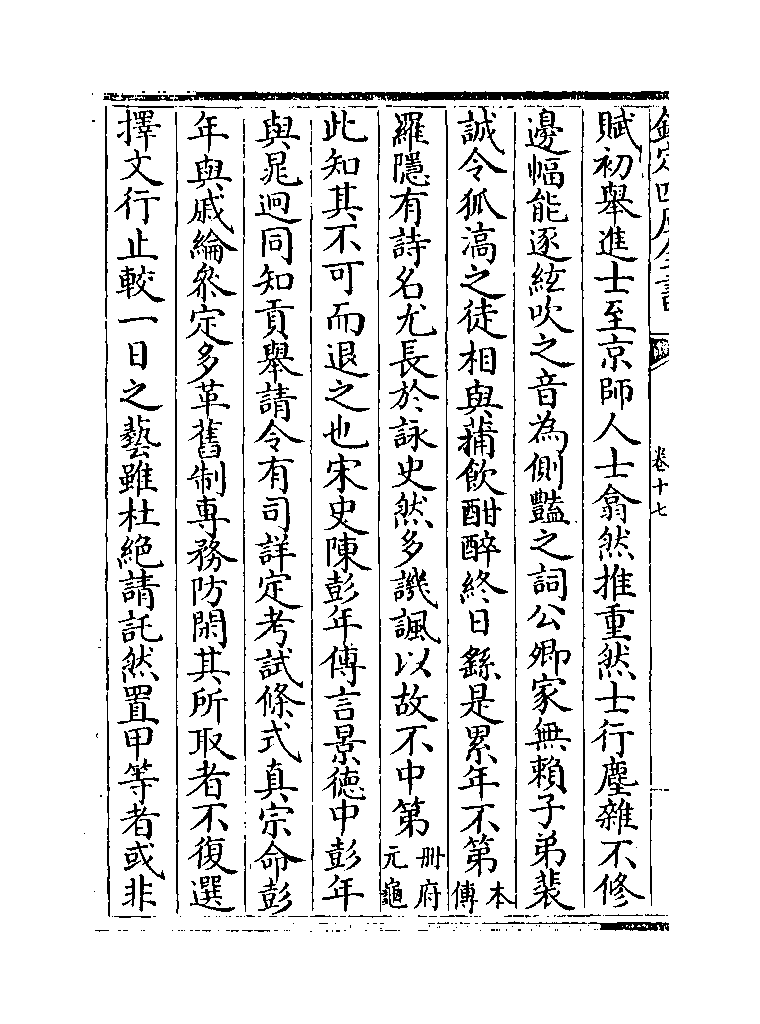 欽定四庫全書
卷十七
賦初舉進士至京師人士翕然推重然士行塵雜不修
邊幅能逐絃吹之音為側豔之詞公卿家無賴子弟裴
誠令狐滈之徒相與蒱飲酣醉終日繇是累年不第本傳
羅隱有詩名尤長於詠史然多譏諷以故不中第冊府元龜
此知其不可而退之也宋史陳彭年傳言景徳中彭年
與晁迥同知貢舉請令有司詳定考試條式真宗命彭
年與戚綸叅定多革舊制專務防閑其所取者不復選
擇文行止較一日之藝雖杜絕請託然置甲等者或非